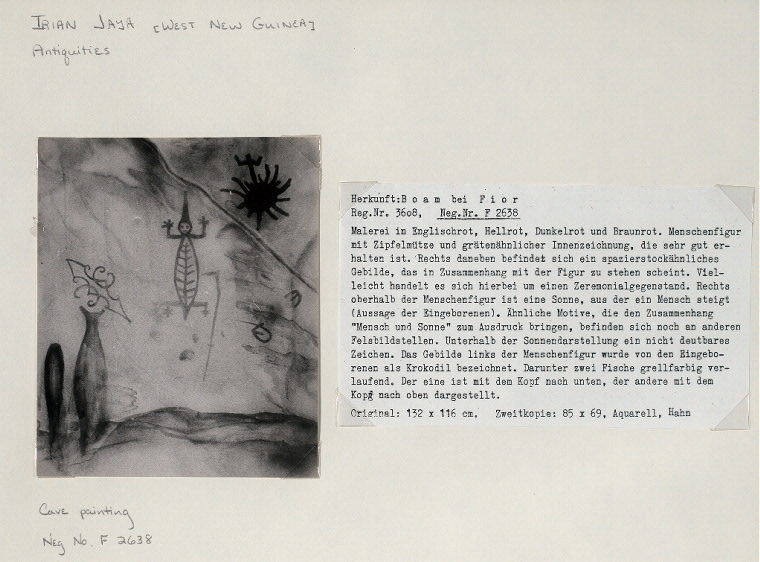 IRIAN JAYA [WEST NEW GUINEA]
Antiquities
Herkunft:B o a m  b e i  F i o r
Reg.Nr. 3608,  Neg.Nr. F 2638
Malerei in Englischrot, Hellrot, Dunkelrot und Braunrot. Menschenfigur
mit Zipfelmütze und grätenähnlicher Innenzeichnung, die sehr gut er-
halten ist. Rechts daneben befindet sich ein spazierstockähnliches
Gebilde, das in Zusammenhang mit der Figur zu stehen scheint. Viel-
leicht handelt es sich hierbei um einen Zeremonialgegenstand. Rechts
oberhalb der Menschenfigur ist eine Sonne, aus der ein Mensch steigt
(Aussage der Eingeborenen). Ähnliche Motive, die den Zusammenhang
"Mensch und Sonne" zum Ausdruck bringen, befinden sich noch an anderen
Felsbildstellen. Unterhalb der Sonnendarstellung ein nicht deutbares
Zeichen. Das Gebilde links der Menschenfigur wurde von den Eingebo-
renen als Krokodil bezeichnet. Darunter zwei Fische grellfarbig ver-
laufend. Der eine ist mit dem Kopf nach unten, der andere mit dem
Kopf nach oben dargestellt.
Original: 132 x 116 cm,  Zweitkopie: 85 x 69, Aquarell, Hahn
Cave painting
Neg No. F 2638